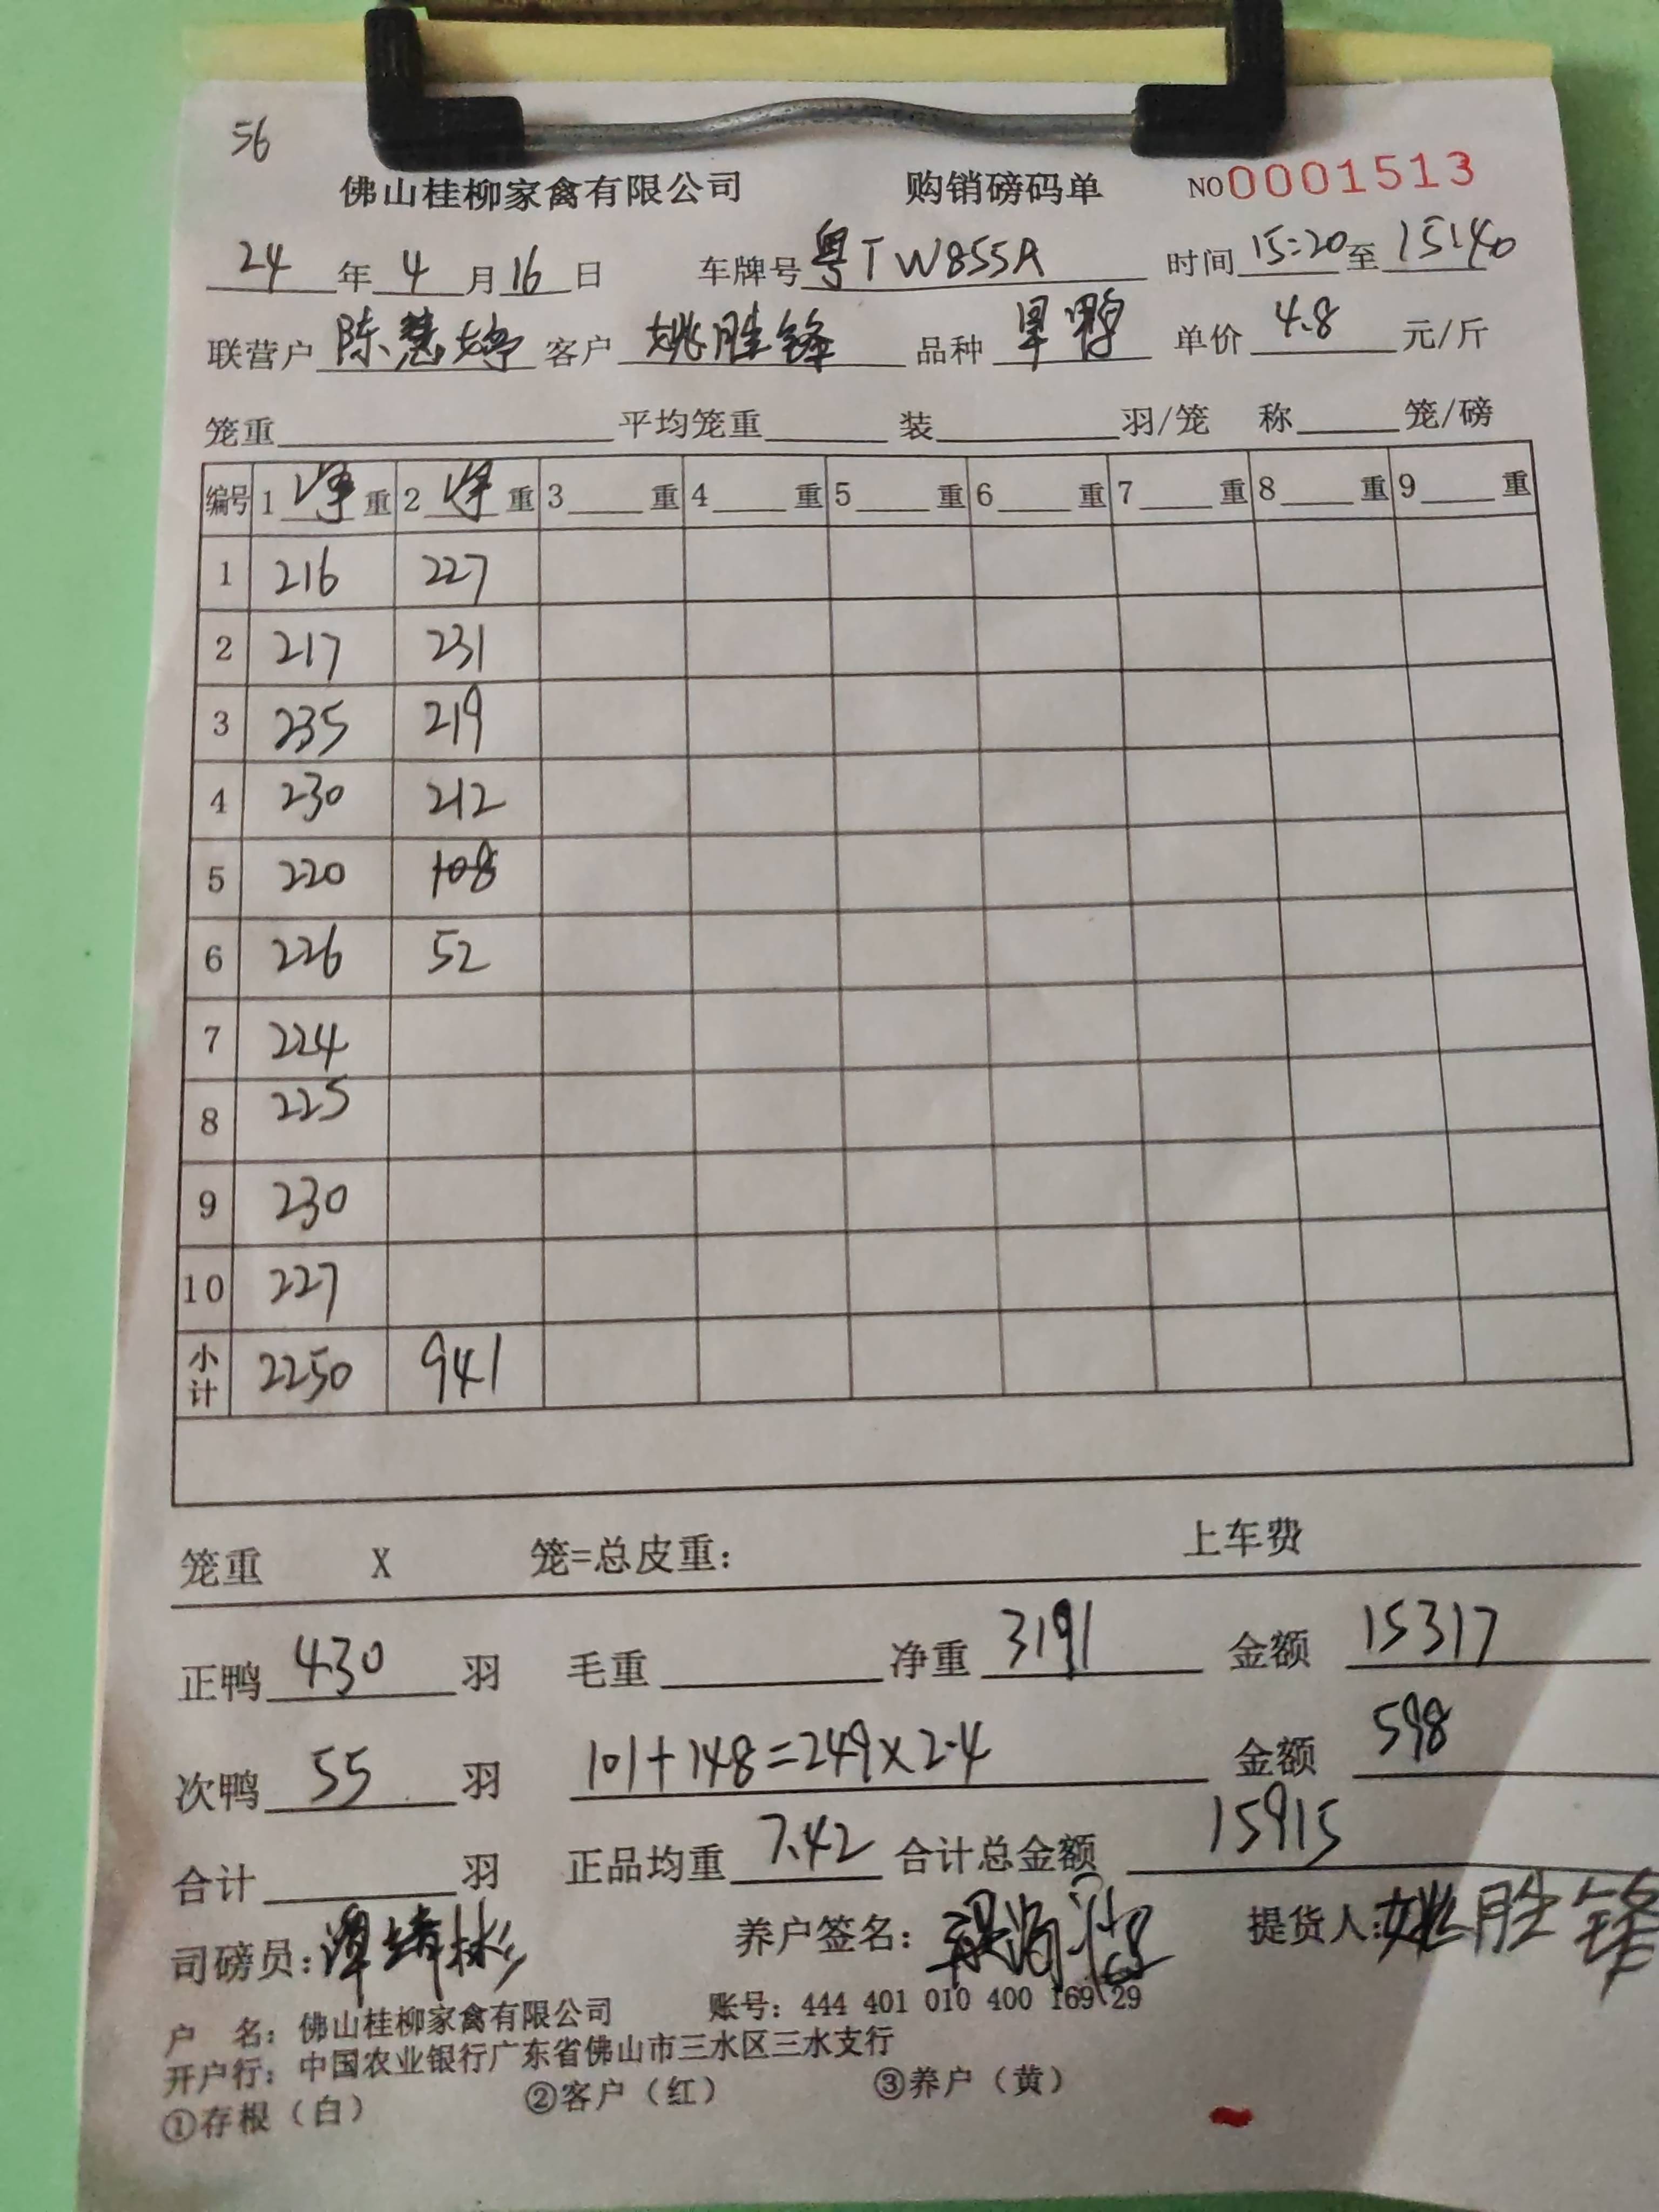 56
佛山桂柳家禽有限公司 购销磅码单 NO0001513
24年4月16日 车牌号粤TW855A 时间15:20至15:40
联营户陈慧婷 客户姚胜锋 品种旱鸭 单价4.8元/斤
笼重 平均笼重 装 羽/笼 称 笼/磅
编号 1净重 2净重 3重 4重 5重 6重 7重 8重 9重
1 216 227
2 217 231
3 235 219
4 230 212
5 220 108
6 226 52
7 224
8 225
9 230
10 227
小计 2250 941
笼重 X 笼=总皮重: 上车费
正鸭430羽 毛重 净重3191 金额15317
次鸭55羽 101+148=249×2.4 金额598
合计 羽 正品均重7.42 合计总金额15915
司磅员: 养户签名: 提货人:姚胜锋
户 名:佛山桂柳家禽有限公司 账号:444 401 010 400 169 29
开户行:中国农业银行广东省佛山市三水区三水支行
①存根(白) ②客户(红) ③养户(黄)